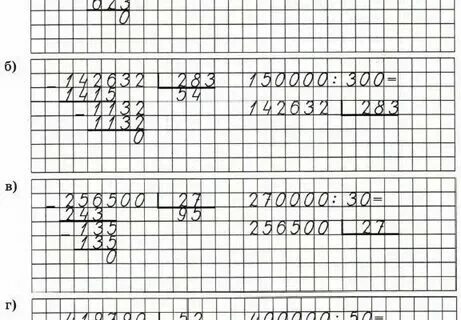 623
0
б)
- 142632 283 150000: 300=
1415 54 142632 283
- 1132
1132
0
в)
- 256500 27 270000: 30=
243 95 256500 27
- 135
135
0
г)
419790 52 400000: 50=